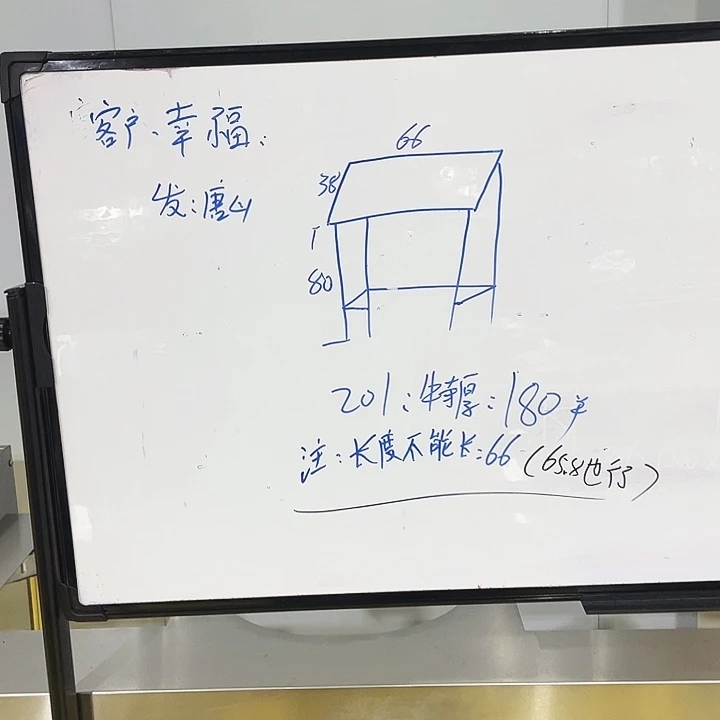 客户、幸福：
发：唐山
66
38
80
201：特厚：180¥
注：长度不能长：66（65.8也行）